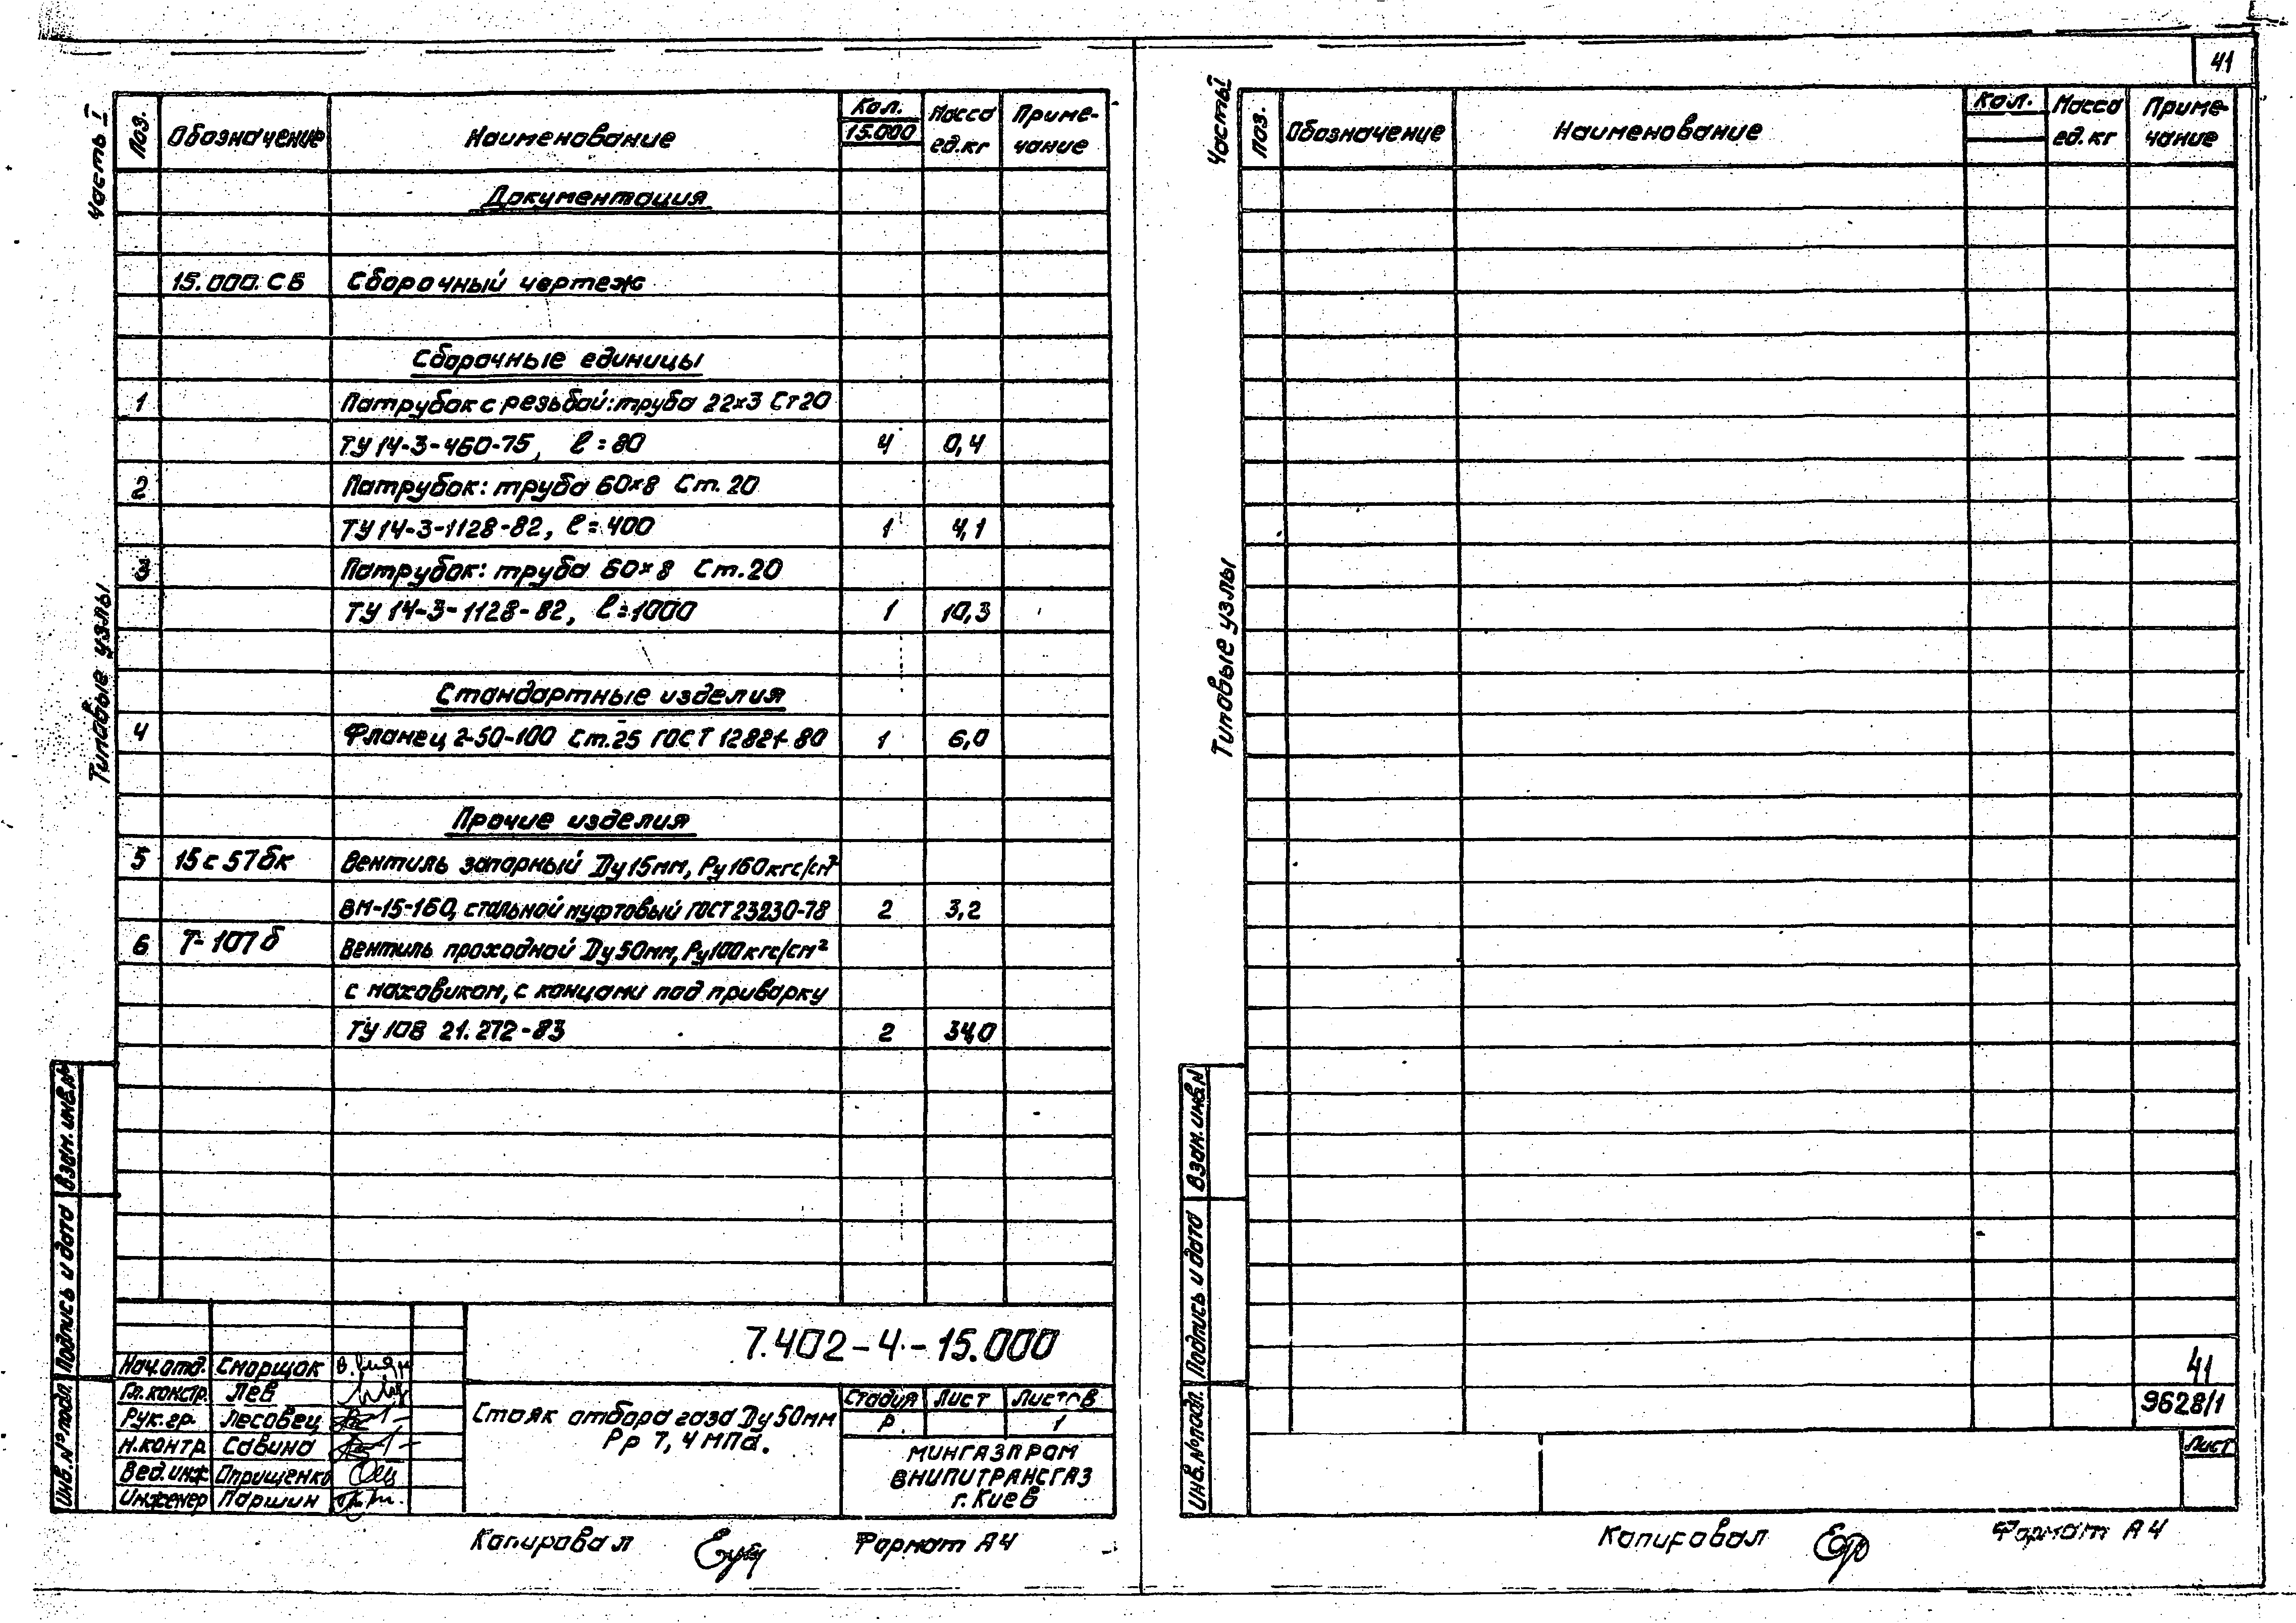 Часть I
Типовые узлы
Поз. Обозначение Наименование Кол. 15.000 Масса ед.кг Примечание
Документация
15.000.СБ Сборочный чертеж
Сборочные единицы
1 Патрубок с резьбой: труба 22×3 Ст20
ТУ 14-3-460-75, ℓ=80 4 0,4
2 Патрубок: труба 60×8 Ст.20
ТУ 14-3-1128-82, ℓ=400 1 4,1
3 Патрубок: труба 60×8 Ст.20
ТУ 14-3-1128-82, ℓ=1000 1 10,3
Стандартные изделия
4 Фланец 2-50-100 Ст.25 ГОСТ 12821-80 1 6,0
Прочие изделия
5 15с57бк Вентиль запорный Ду15мм, Ру160кгс/см²
ВМ-15-160, стальной муфтовый ГОСТ 23230-78 2 3,2
6 Т-107б Вентиль проходной Ду50мм, Ру100кгс/см²
с маховиком, с концами под приварку
ТУ 108 21.272-83 2 34,0
Взам.инв.№
Подпись и дата
Инв.№подл.
7.402-4-15.000
Нач.отд. Сморщак
Гл.констр. Лев
Рук.гр. Лесовец
Н.контр. Савина
Вед.инж. Оприщенко
Инженер Паршин
Стояк отбора газа Ду50мм
Рр 7,4 МПа.
Стадия Лист Листов
Р 1
МИНГАЗПРОМ
ВНИПИТРАНСГАЗ
г. Киев
Копировал Формат А4
41
Часть I
Типовые узлы
Поз. Обозначение Наименование Кол. Масса ед.кг Примечание
Взам.инв.№
Подпись и дата
Инв.№подл.
41
9628/1
Лист
Копировал Формат А4